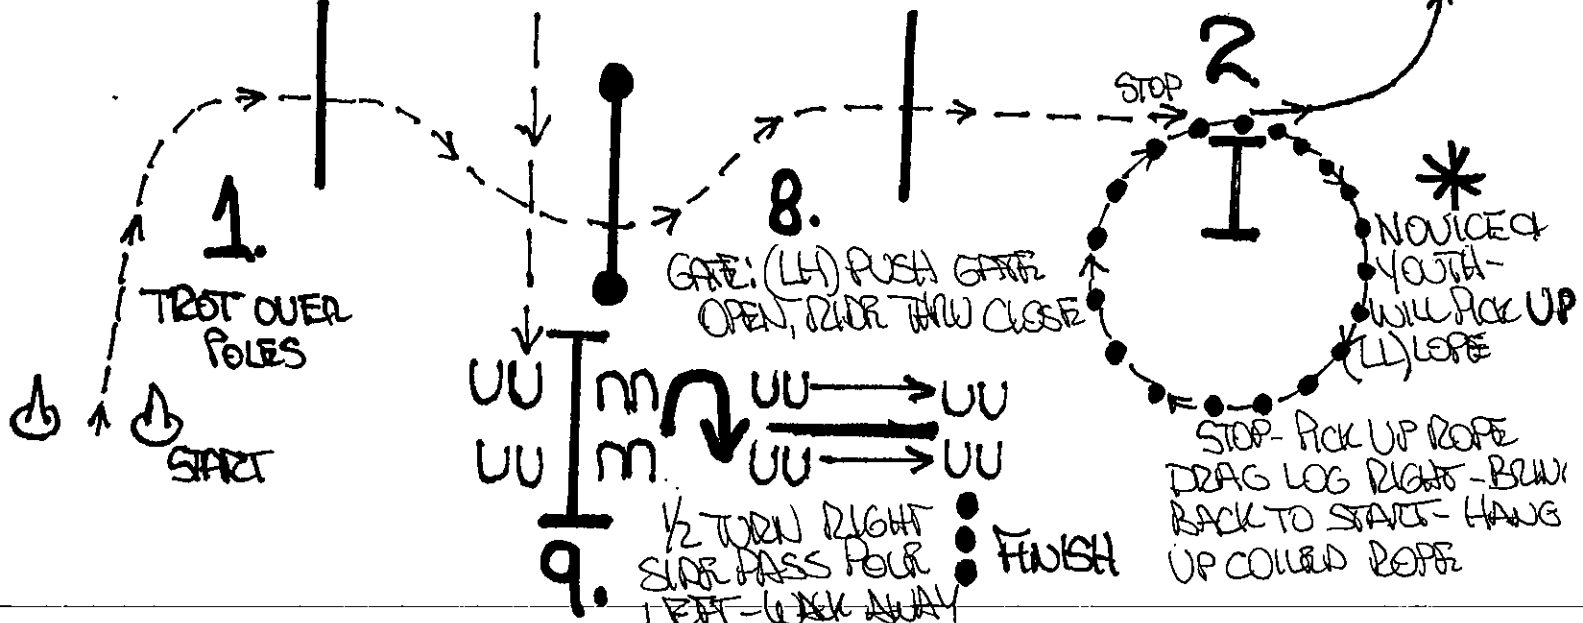 1.
TROT OVER
POLES
START
2.
STOP
8.
GATE: (LH) PUSH GATE
OPEN, RIDE THRU CLOSE
*
NOVICE &
YOUTH-
WILL PICK UP
(LL) LOPE
STOP- PICK UP ROPE
DRAG LOG RIGHT -BRIN
BACK TO START- HANG
UP COILED ROPE
9.
1/2 TURN RIGHT
SIDE PASS POLE
LEFT-WALK AWAY
FINISH